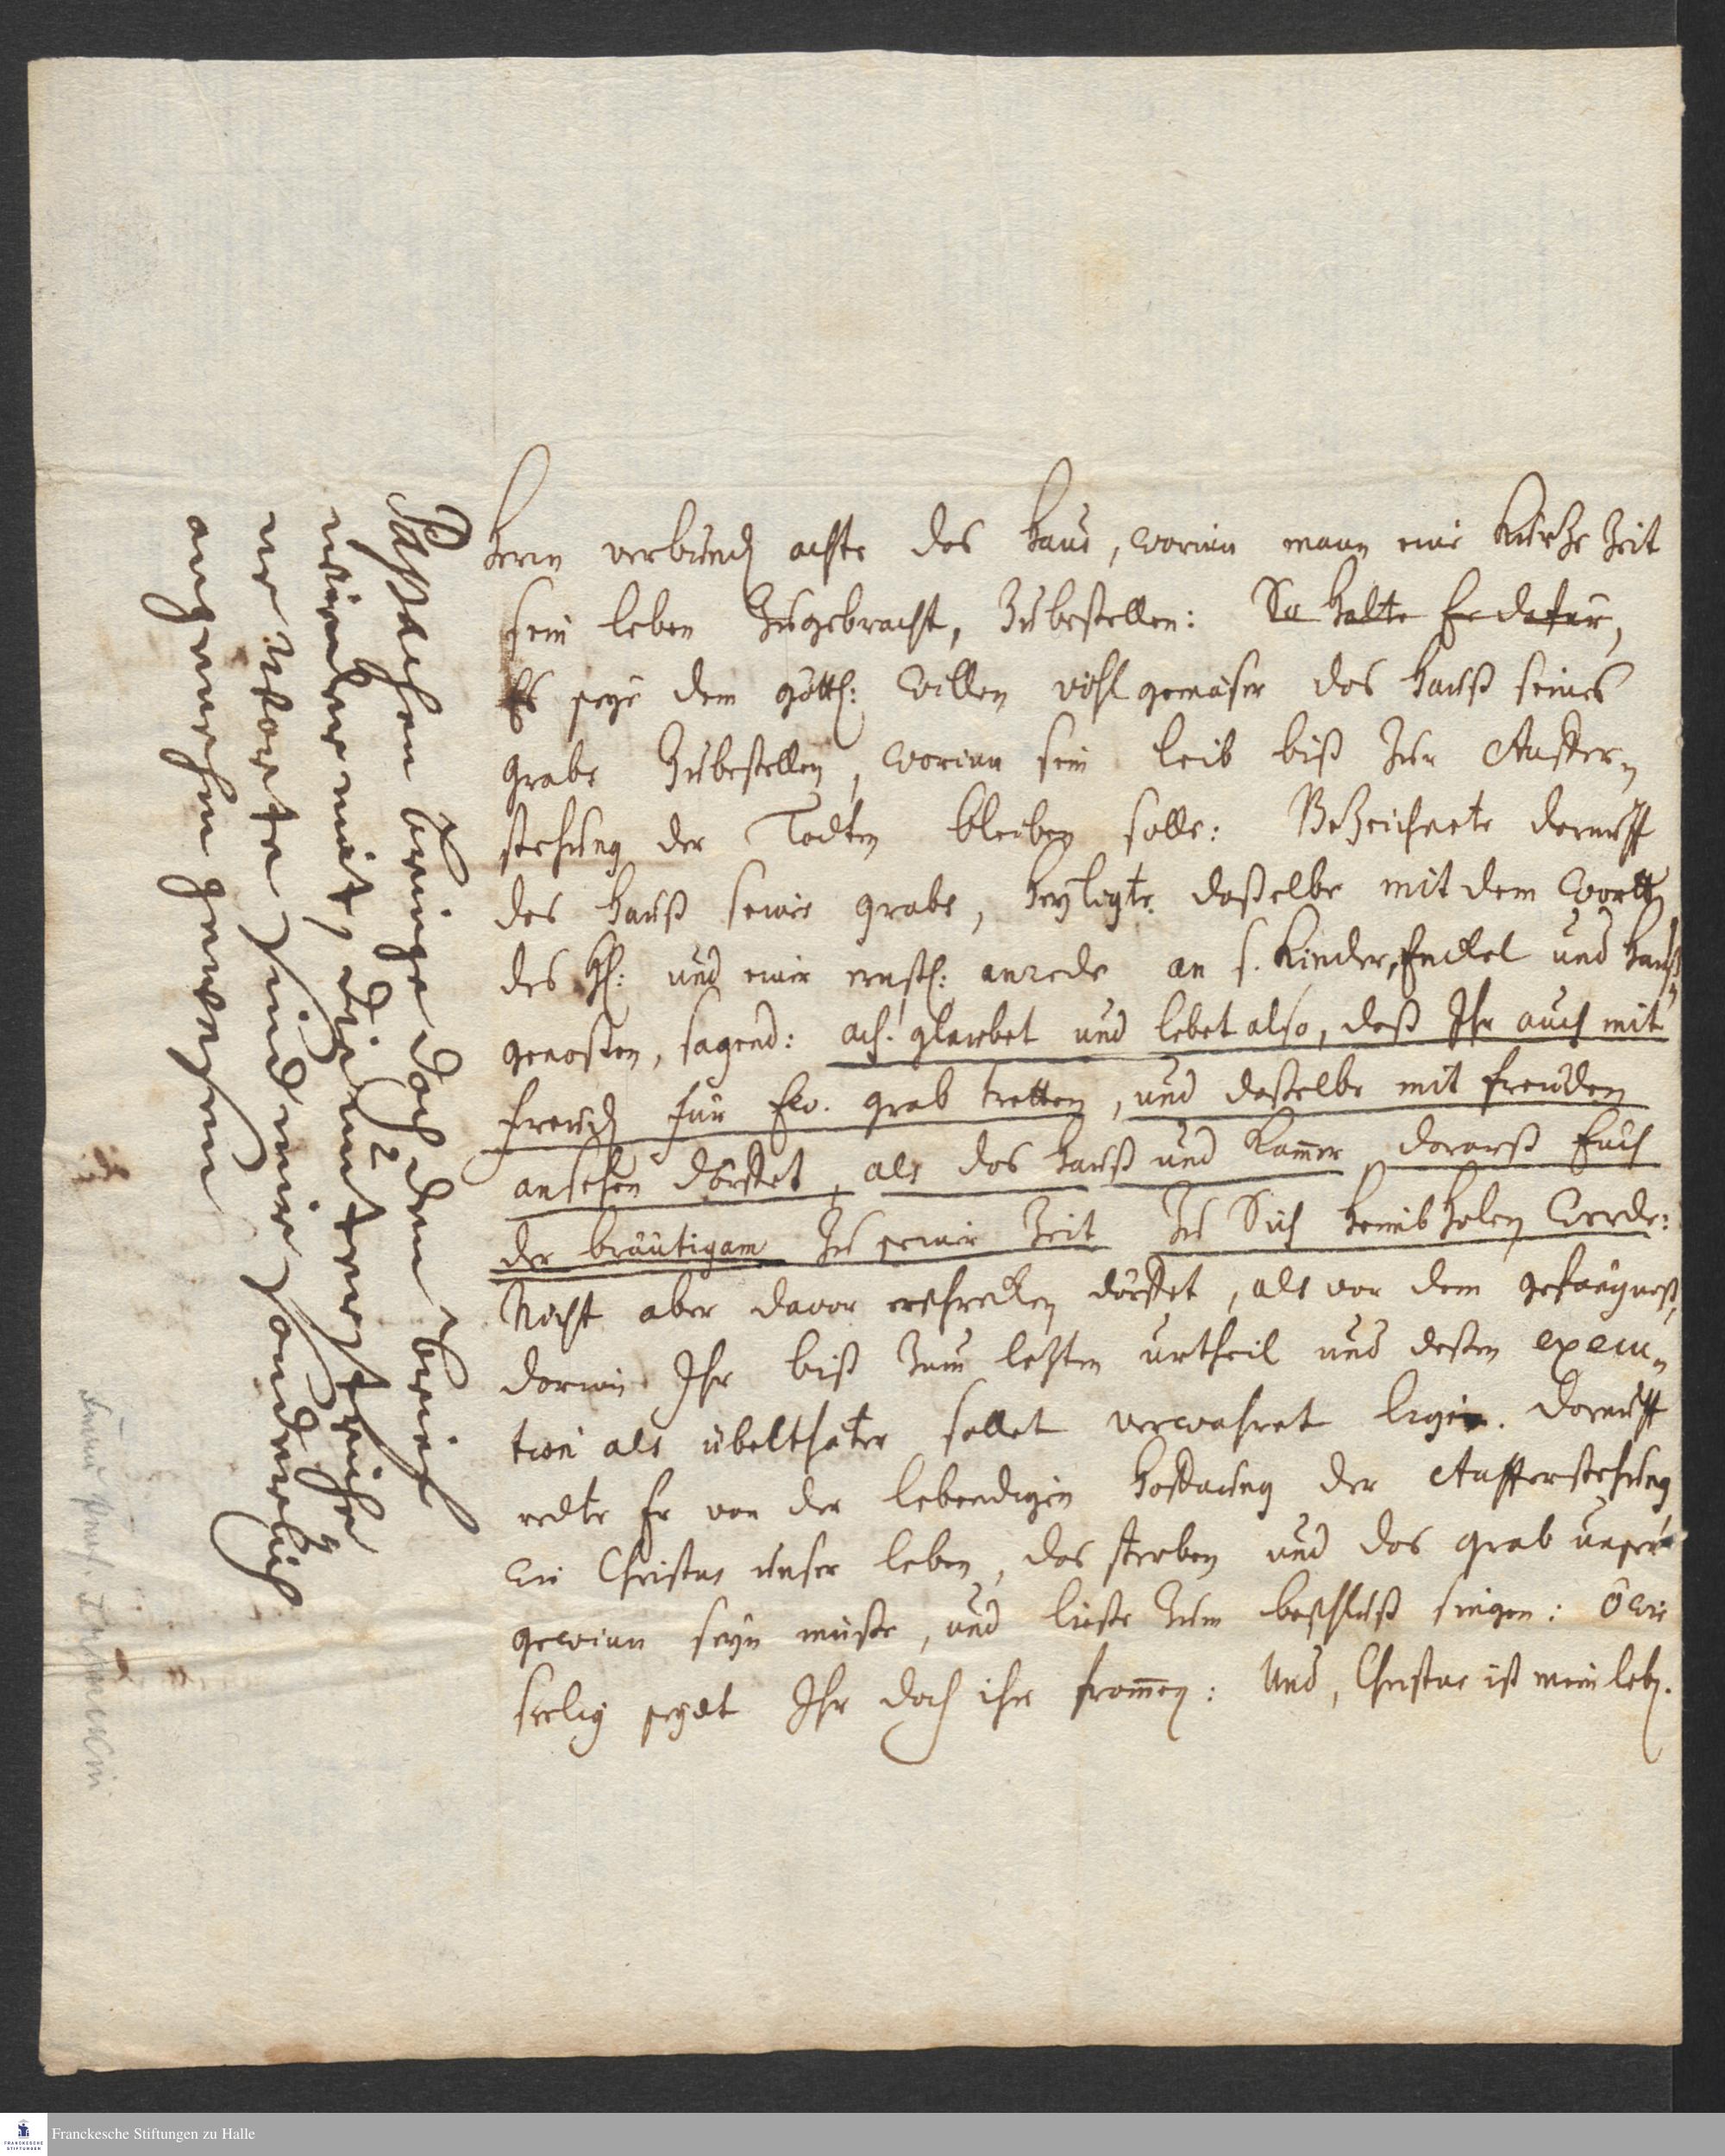 herrn verbunden achte das haus, worinn mann eine kurtze Zeit
sein leben Zugebracht, Zubestellen: So halte Er dafür,
Es seye dem göttl: willen wohl gemäser das hauß seines
grabs Zubestellen, worinn sein leib biß Zur Auffer-
stehung der Todten bleiben solle: Bezeichnete darauff
das hauß seines grabs, heyligte daßelbe mit dem Wortt
des H: und einer ernstl: anrede an s. Kinder, Enckel und hauß-
genoßen, sagend: ach! glaubet und lebet also, daß Ihr auch mit
freuden für Ew. grab tretten, und daßelbe mit freuden
ansehen dörffet, als das hauß und Kammer, darauß Euch
der bräutigam Zu seiner Zeit Zu Sich heimb holen werde:
Nicht aber davor erschrecken dörffet, als vor dem gefängnuß,
darinn Ihr biß Zum letzten urtheil und deßen execu-
tion als übelthäter sollet verwahret ligen. Darauff
redte Er von der lebendigen hoffnung der Aufferstehung
wie Christus unser leben, das sterben und das grab unser
gewinn seyn müste, und ließe Zum beschluß singen: O wie
seelig seydt Ihr doch ihr frommen: Und, Christus ist mein leb.
bringe doch den brief
wieder mit, die
Worte sind mir sonderlich
angenehm gewesen
Franckesche Stiftungen zu Halle